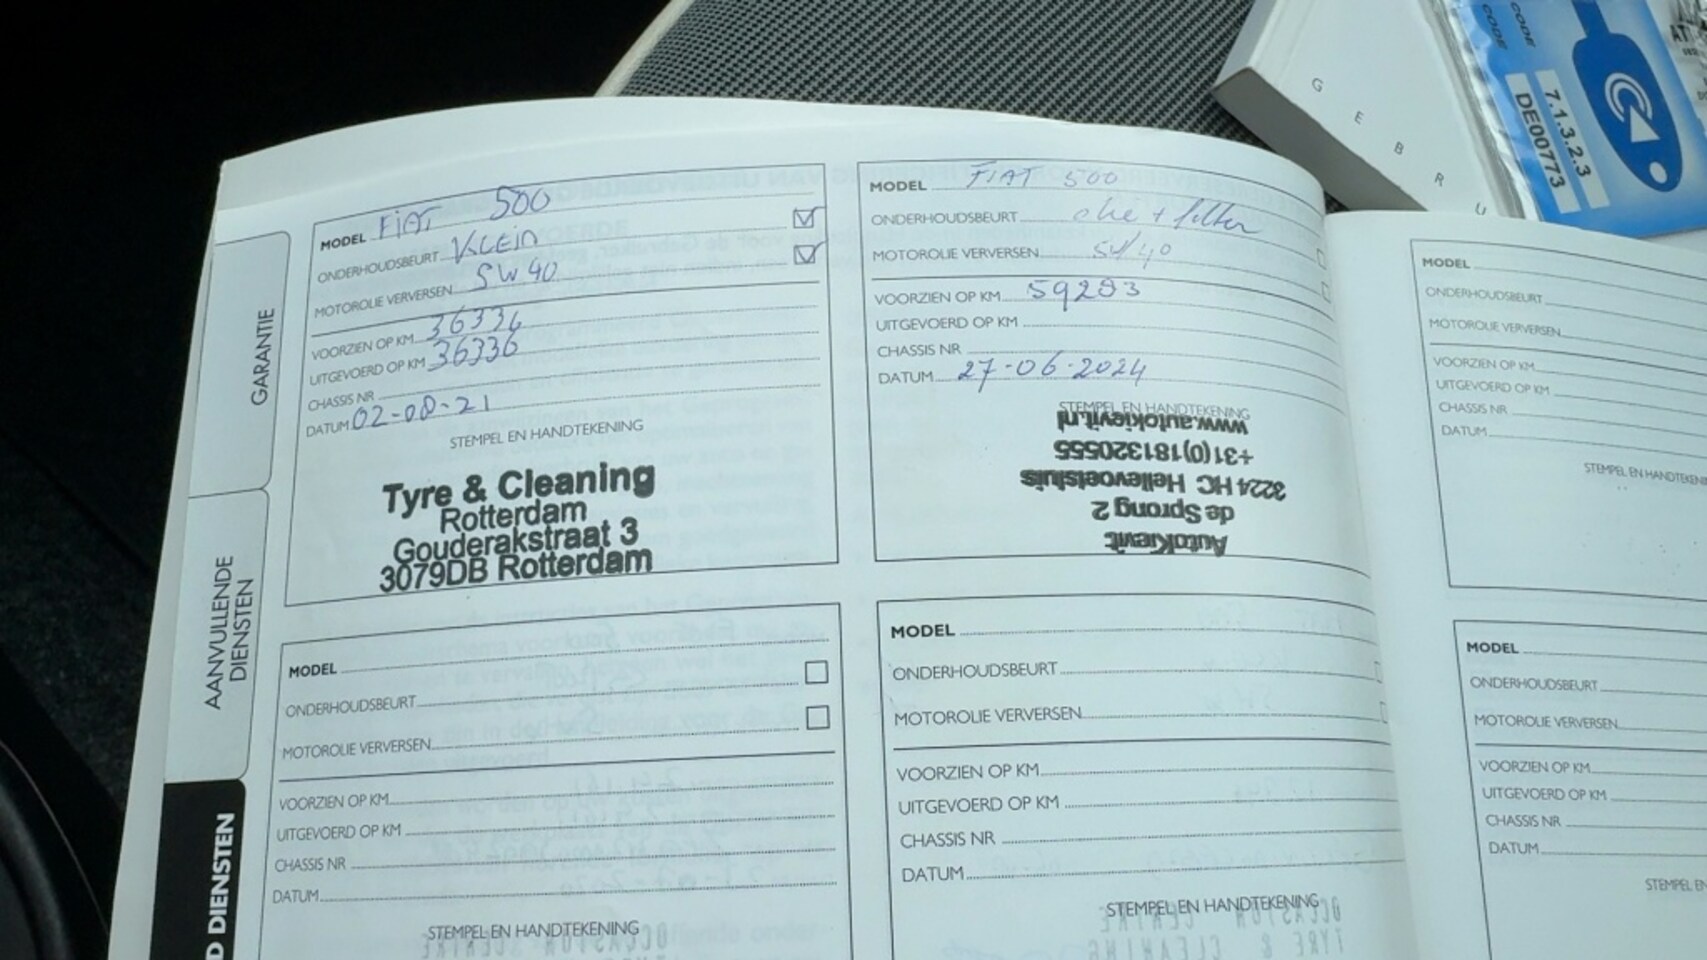 GARANTIE
AANVULLENDE
DIENSTEN
D DIENSTEN
MODEL FIAT 500
ONDERHOUDSBEURT KLEIN
MOTOROLIE VERVERSEN 5W40
VOORZIEN OP KM 36336
UITGEVOERD OP KM 36336
CHASSIS NR
DATUM 02-08-21
STEMPEL EN HANDTEKENING
Tyre & Cleaning
Rotterdam
Gouderakstraat 3
3079DB Rotterdam
MODEL FIAT 500
ONDERHOUDSBEURT olie + filter
MOTOROLIE VERVERSEN 5W40
VOORZIEN OP KM 59283
UITGEVOERD OP KM
CHASSIS NR
DATUM 27-06-2024
STEMPEL EN HANDTEKENING
AutoKievit
de Sprong 2
3224 HC Hellevoetsluis
+31(0)181320555
www.autokievit.nl
MODEL
ONDERHOUDSBEURT
MOTOROLIE VERVERSEN
VOORZIEN OP KM
UITGEVOERD OP KM
CHASSIS NR
DATUM
STEMPEL EN HANDTEKENING
MODEL
ONDERHOUDSBEURT
MOTOROLIE VERVERSEN
VOORZIEN OP KM
UITGEVOERD OP KM
CHASSIS NR
DATUM
STEMPEL EN HANDTEKENING
MODEL
ONDERHOUDSBEURT
MOTOROLIE VERVERSEN
VOORZIEN OP KM
UITGEVOERD OP KM
CHASSIS NR
DATUM
STEMPEL EN HANDTEKENIN
MODEL
ONDERHOUDSBEURT
MOTOROLIE VERVERSEN
VOORZIEN OP KM
UITGEVOERD OP KM
CHASSIS NR
DATUM
STEMPEL EN
GEBRU
CODE
CODE
7.1.3.2.3
DE00773